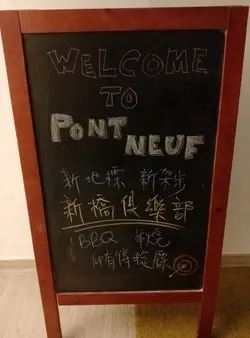 WELCOME
TO
PONT
NEUF
新地標 新架步
新橋俱樂部
BBQ 串燒
仲有得掟鏢